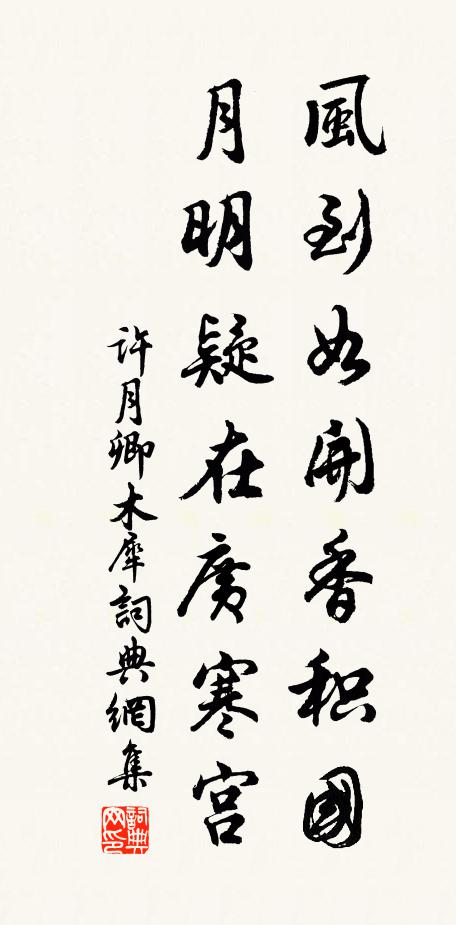 風到如開香积國
月明疑在廣寒宫
許月卿木犀詞典網集
詞典网印